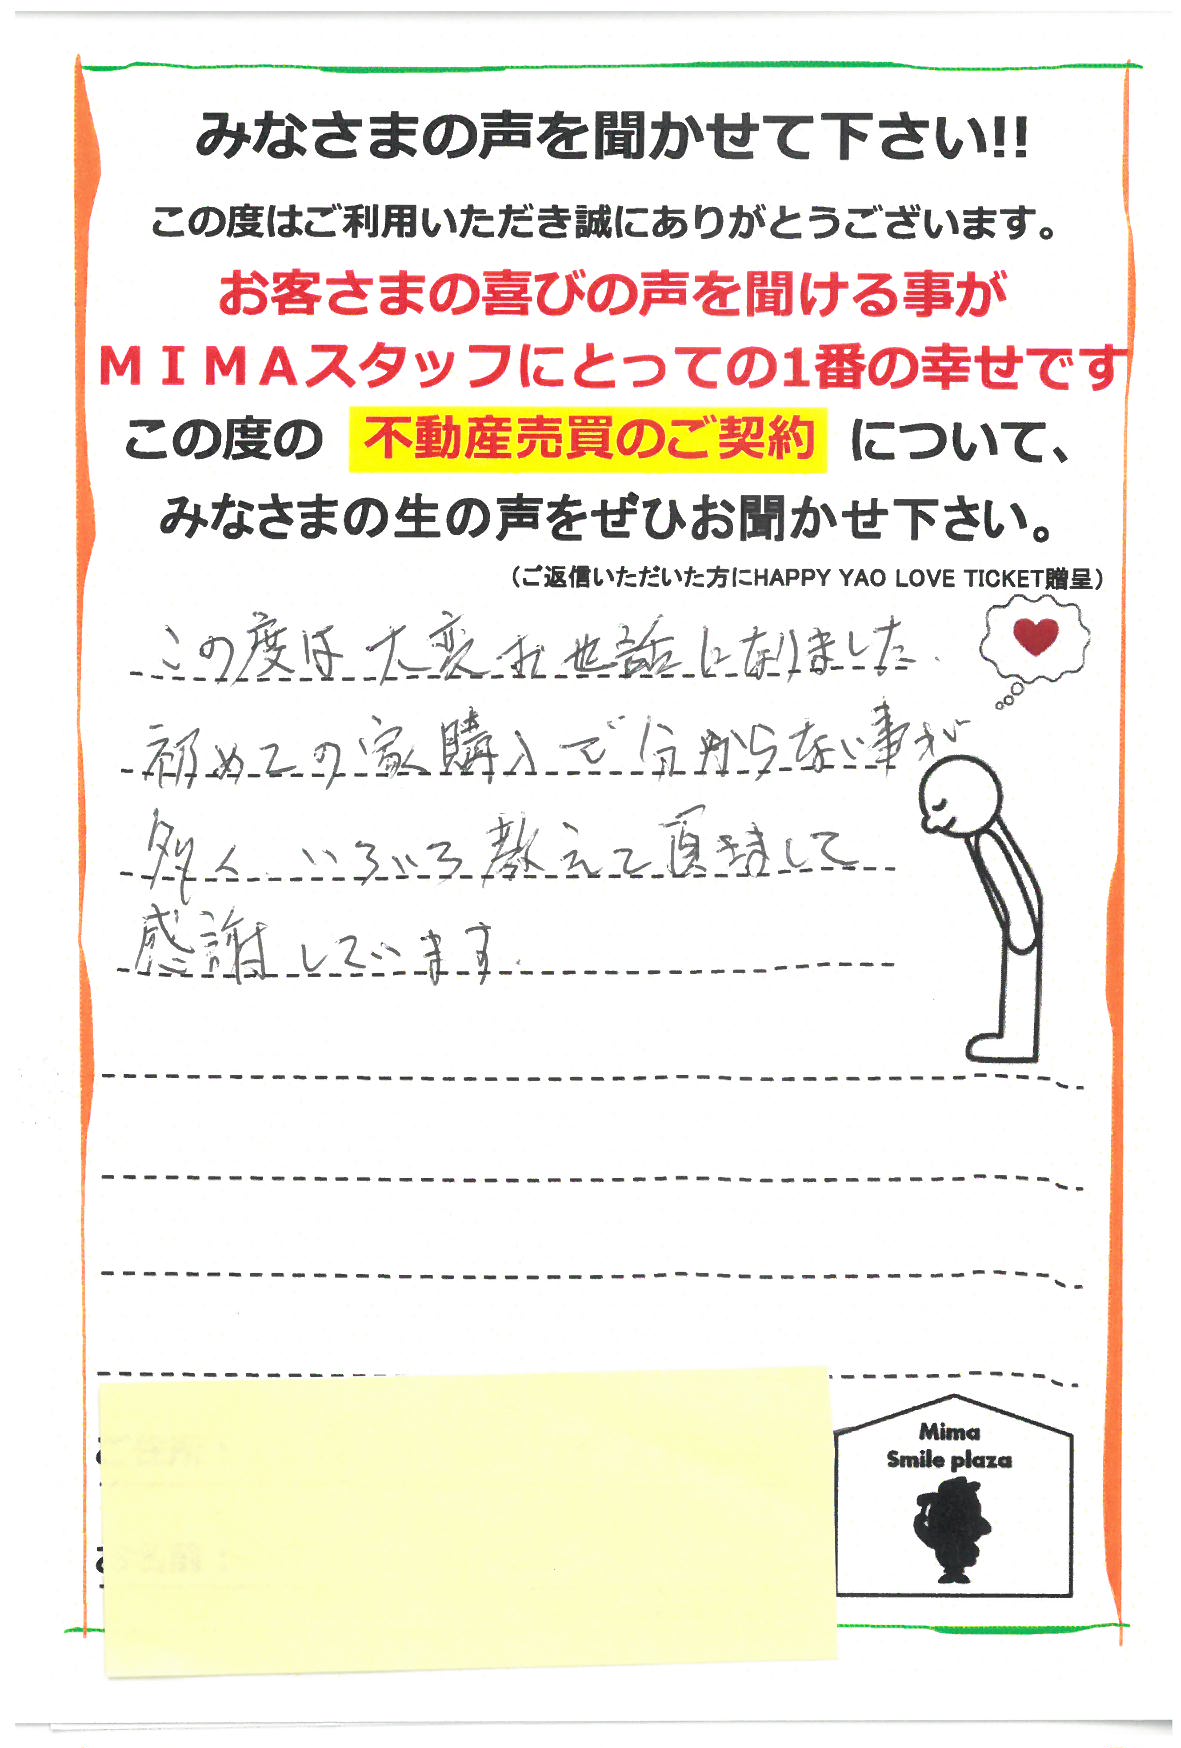 みなさまの声を聞かせて下さい!!
この度はご利用いただき誠にありがとうございます。
お客さまの喜びの声を聞ける事が
ＭＩＭＡスタッフにとっての1番の幸せです
この度の 不動産売買のご契約 について、
みなさまの生の声をぜひお聞かせ下さい。
（ご返信いただいた方にHAPPY YAO LOVE TICKET贈呈）
この度は大変お世話になりました.
初めての家購入で分からない事が
多く、いろいろ教えて頂きまして
感謝しています.
ご住所：
お名前：
Mima
Smile plaza